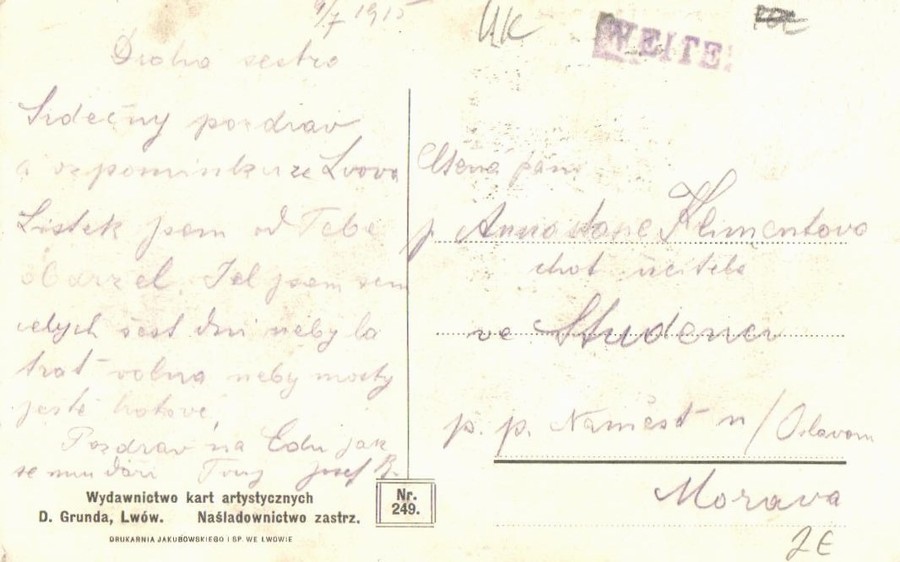 9/7 1915
UK
Drahá sestro
Srdečný pozdrav
a vzpomínku ze Lvova
Lístek jsem od Tebe
obdržel. Jel jsem sem
celých šest dní neby la
trať volna neby mosty
ještě hotové,
Pozdrav na Edu jak
se mu daří Tvůj Josef
p. Anna Klimentova
choť učitele
ve Studenci
p. p. Namešt n/Oslavom
Morava
Wydawnictwo kart artystycznych
D. Grunda, Lwów. Naśladownictwo zastrz.
DRUKARNIA JAKUBOWSKIEGO I SP. WE LWOWIE
Nr.
249.
2€